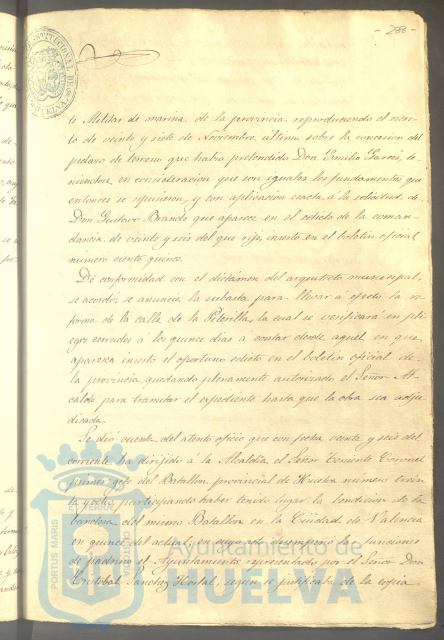 - 286 -
te Militar de marina de la provincia reproduciendo el escri-
to de veinte y siete de Noviembre último sobre la concesion del
pedazo de terreno que habia pretendido Don Emilio Garcés, te-
niendose en consideracion que son iguales los fundamentos que
entonces se opusieron, y con aplicacion exacta á la solicitud de
Don Gustavo Brandt que aparece en el edicto de la coman-
dancia de veinte y seis del que rije, inserto en el boletin oficial
número ciento quince.
De conformidad con el dictámen del arquitecto municipal,
se acordó se anuncie la subasta para llevar á efecto la re-
forma de la calle de la Pelerilla, la cual se verificará en pli-
egos cerrados á los quince dias á contar desde aquel en que
aparezca inserto el oportuno edicto en el boletin oficial de
la provincia, quedando plenamente autorizado el Señor Al-
calde para tramitar el expediente hasta que la obra sea adju-
dicada.
Se dió cuenta del atento oficio que con fecha veinte y seis del
corriente ha dirijido á la Alcaldia el Señor Teniente Coronel
primer gefe del Batallon provincial de Huelva número trein-
ta y ocho participando haber tenido lugar la bendicion de la
bandera del mismo Batallon en la Ciudad de Valencia
en quince del actual, en cuyo acto desempeñó las funciones
de padrino el Ayuntamiento representado por el Señor Don
Cristobal Sanchez Hostal, segun se justificaba de la copia
PORTUS MARIS ET TERRAE
Ayuntamiento de
HUELVA